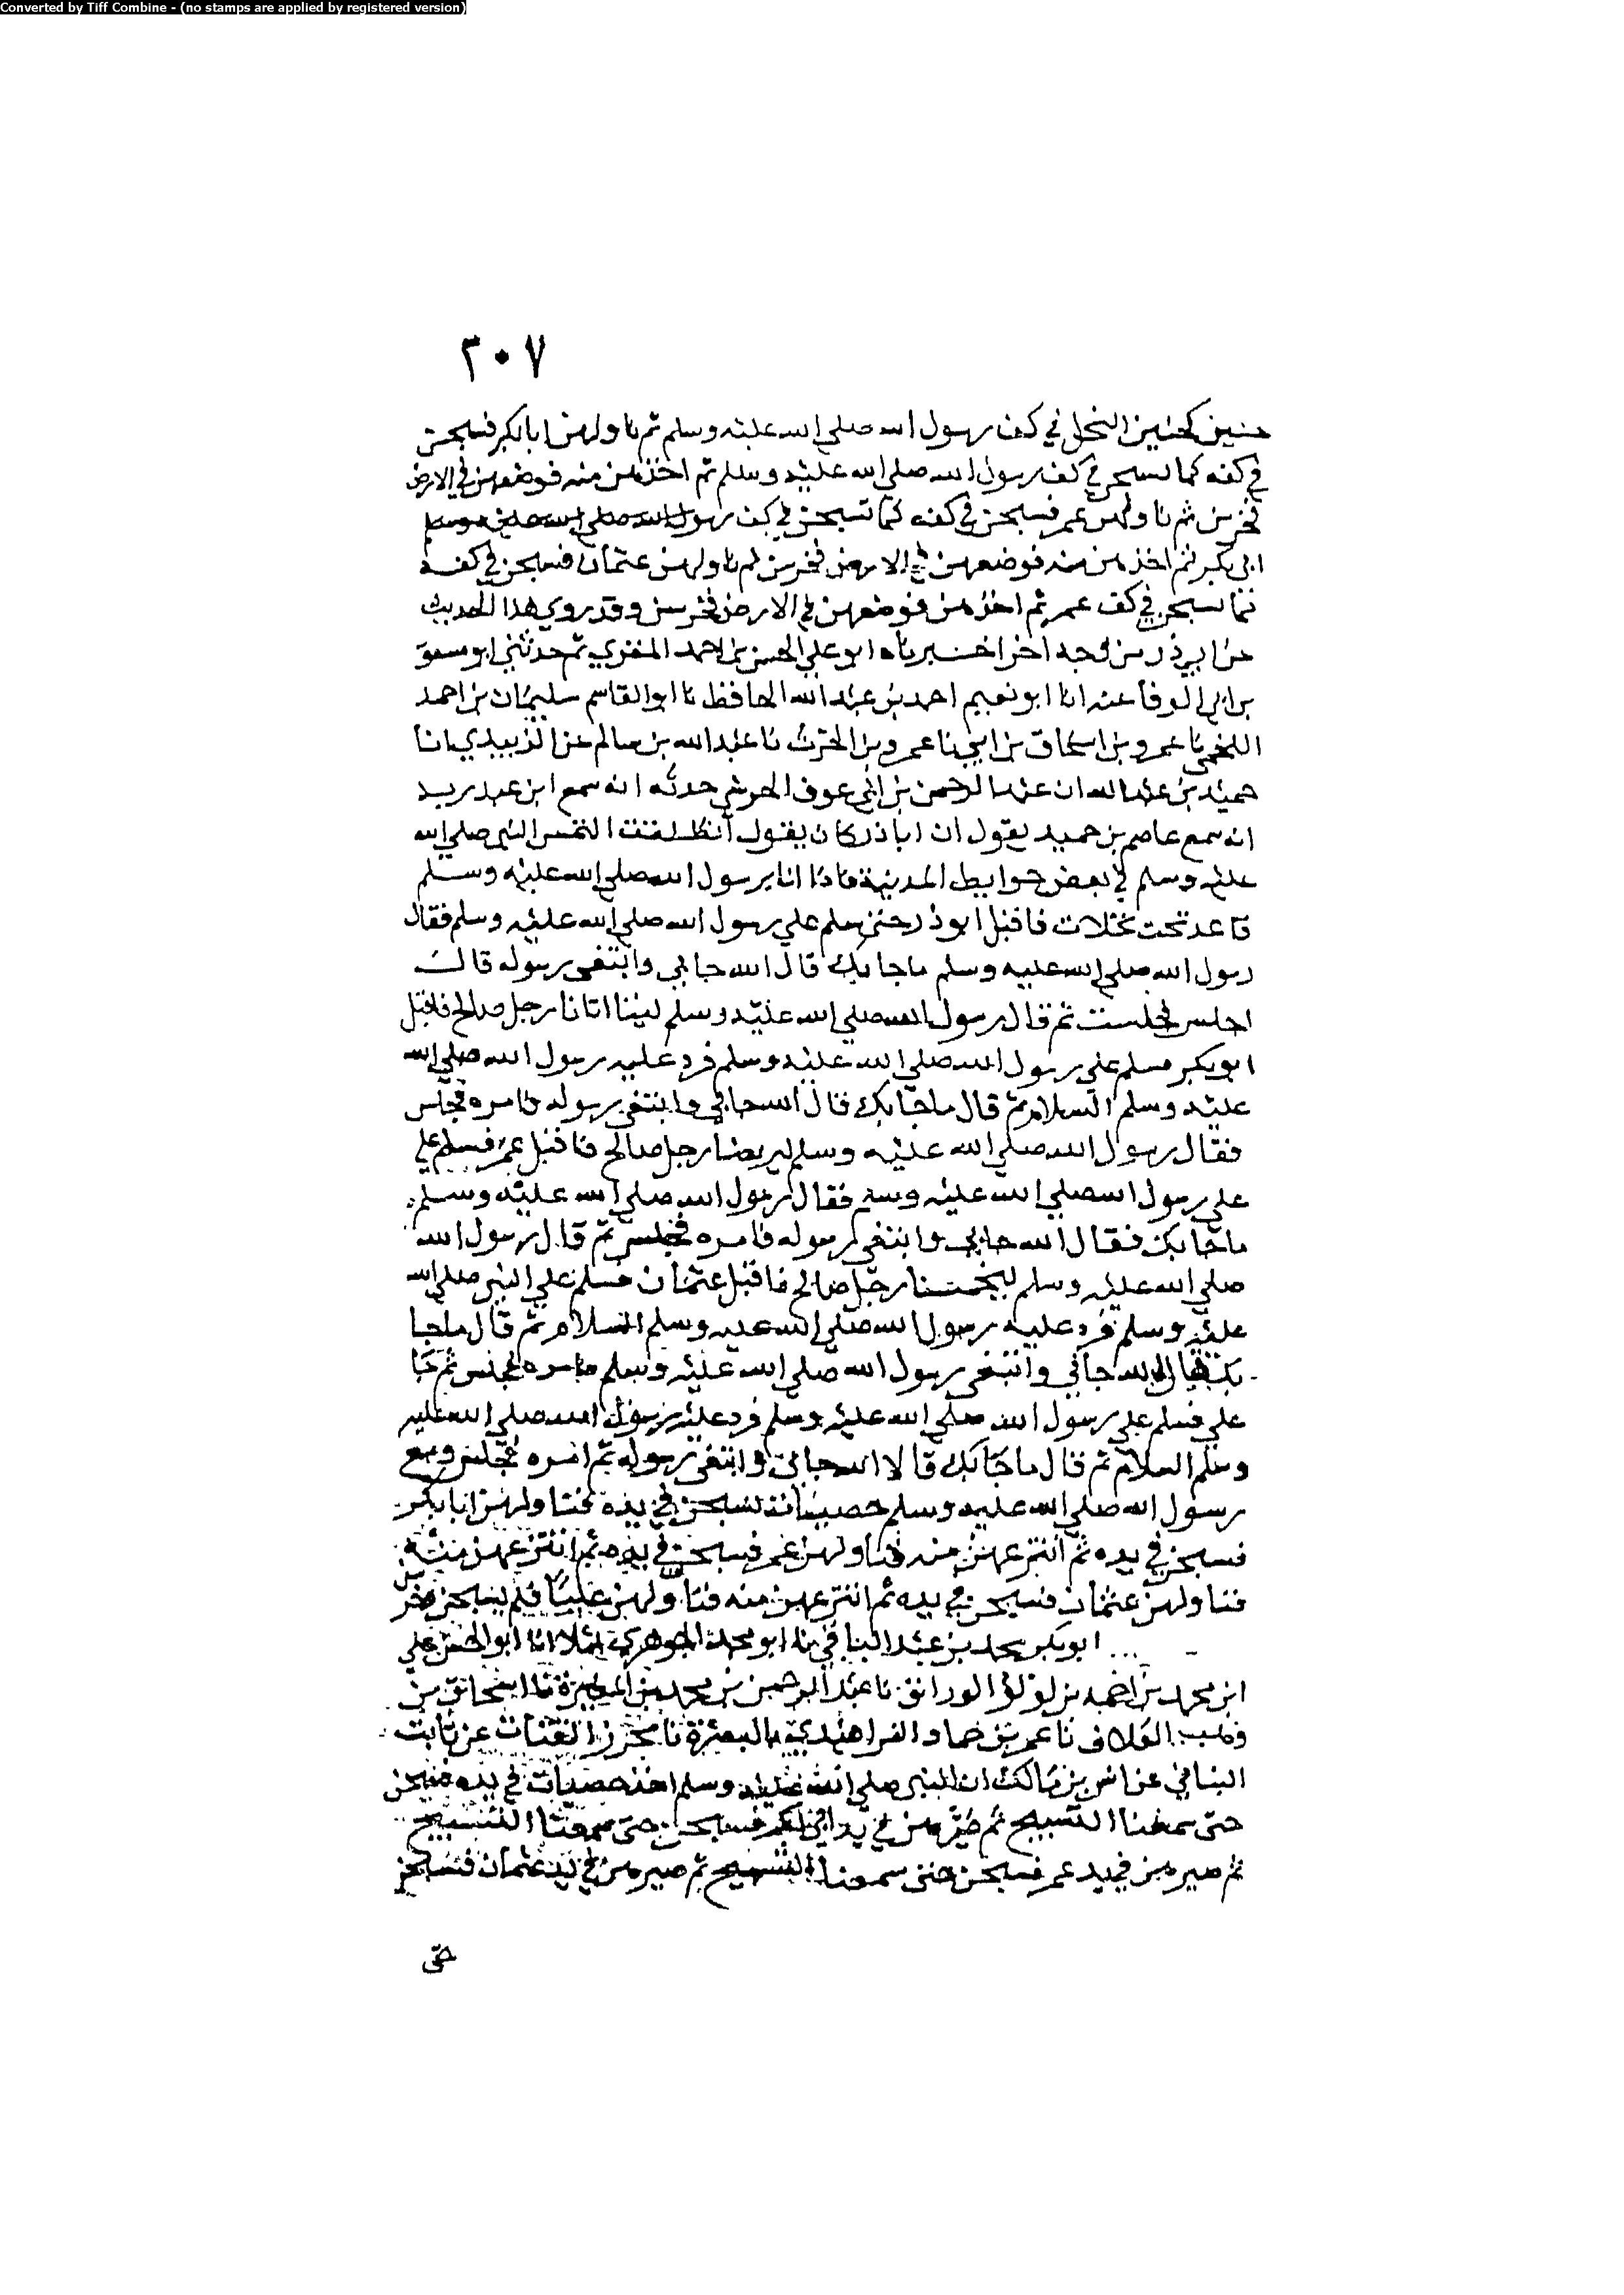 Converted by Tiff Combine - (no stamps are applied by registered version)
٣٠٧
حنين كحنين النحل في كف رسول الله صلي الله عليه وسلم ثم ناولهن ابا بكر فسبحن
في كفه كما تسبحن في كف رسول الله صلي الله عليه وسلم ثم اخذهن منه فوضعهن في الارض
فخرسن ثم ناولهن عمر فسبحن في كفه كما تسبحن في كف رسول الله صلي الله عليه وسلم
ابي بكر ثم اخذهن منه فوضعهن في الارض فخرسن ثم ناولهن عثمان فسبحن في كفه
كما تسبحن في كف عمر ثم اخذهن فوضعهن في الارض فخرسن وقد روي هذا الحديث
عن ابي ذر من وجه اخر اخبرناه ابو علي الحسن بن احمد المقري ثم حدثني ابو مسعو
بن ابي الوفا عنه انا ابو نعيم احمد بن عبد الله الحافظ نا ابو القاسم سليمان بن احمد
اللخمي نا عمرو بن اسحاق بن ابي نا عمرو بن الحرث نا عبد الله بن سالم عن الزبيدي انا
حميد بن عبد الله ان عبد الرحمن بن ابي عوف الحرشي حدثه انه سمع ابن عبد ربه
انه سمع عاصم بن حميد يقول ان ابا ذر كان يقول انطلقت التمس النبي صلي الله
عليه وسلم في بعض حوايط المدينة فاذا انا برسول الله صلي الله عليه وسلم
قاعد تحت نخلات فاقبل ابو ذر حتي سلم علي رسول الله صلي الله عليه وسلم فقال
رسول الله صلي الله عليه وسلم ما جا بك قال الله جا بي وابتغي رسوله قال
اجلس فجلست ثم قال رسول الله صلي الله عليه وسلم ليتنا اتانا رجل صالح فاقبل
ابو بكر فسلم علي رسول الله صلي الله عليه وسلم فرد عليه رسول الله صلي الله
عليه وسلم السلام ثم قال ما جا بك قال الله جا بي وابتغي رسوله فامره فجلس
فقال رسول الله صلي الله عليه وسلم رجل صالح فاقبل عمر فسلم علي
علي رسول الله صلي الله عليه وسلم فقال رسول الله صلي الله عليه وسلم
ما جا بك فقال الله جا بي وابتغي رسوله فامره فجلس ثم قال رسول الله
صلي الله عليه وسلم رجل صالح فاقبل عثمان فسلم علي النبي صلي الله
عليه وسلم فرد عليه رسول الله صلي الله عليه وسلم السلام ثم قال ما جا
بك فقال الله جا بي وابتغي رسول الله صلي الله عليه وسلم فامره فجلس ثم جا
علي فسلم علي رسول الله صلي الله عليه وسلم فرد عليه رسول الله صلي الله عليه
وسلم السلام ثم قال ما جا بك قالا الله جا بي وابتغي رسوله ثم امره فجلس ومع
رسول الله صلي الله عليه وسلم حصيات تسبحن في يده فناولهن ابا بكر
فسبحن في يده ثم انتزعهن منه فناولهن عمر فسبحن في يده ثم انتزعهن منه
فناولهن عثمان فسبحن في يده ثم انتزعهن منه فناولهن عليا فلم يسبحن وخرسن
ابو بكر محمد بن عبد الباقي نا ابو محمد الجوهري املا انا ابو الحسن علي
ابن محمد بن احمد بن لولو الوراق نا عبد الرحمن بن محمد بن المغيرة نا اسحاق بن
وهب العلاف نا عمر بن حماد الفراهيدي بالبصرة نا عن ثابت
البناني عن انس بن مالك ان النبي صلي الله عليه وسلم اخذ حصيات في يده فسبحن
حتي سمعنا التسبيح ثم صيرهن في يد ابي بكر فسبحن حتي سمعنا التسبيح
ثم صيرهن في يد عمر فسبحن حتي سمعنا التسبيح ثم صيرهن في يد عثمان فسبحن
حتي